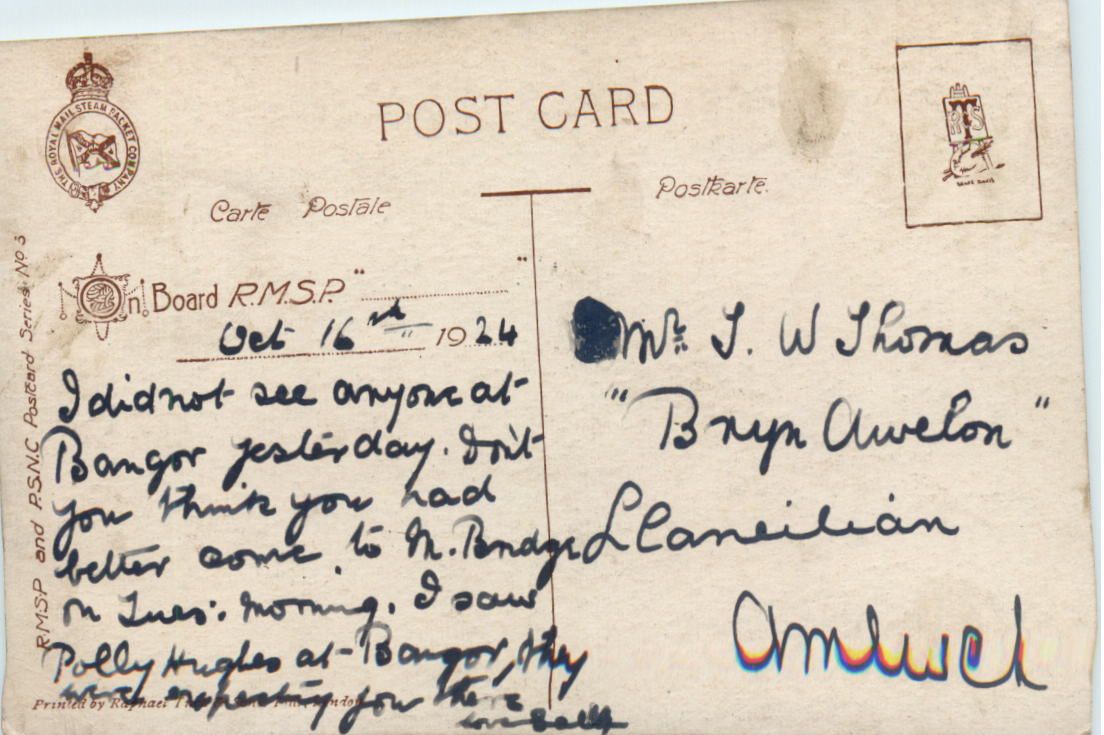 THE ROYAL MAIL STEAM PACKET COMPANY
POST CARD
Carte Postale
Postkarte.
R.M.S.P. and P.S.N.C. Postcard Series No 3
On Board R.M.S.P. " "
Oct 16th 1924
I did not see anyone at
Bangor yesterday. Don't
you think you had
better come to M. Bridge
on Tues: morning. I saw
Polly Hughes at Bangor, they
were expecting you there
love
Printed by Raphael
Mr. T. W Thomas
"Bryn Awelon"
Llaneilian
Amlwch